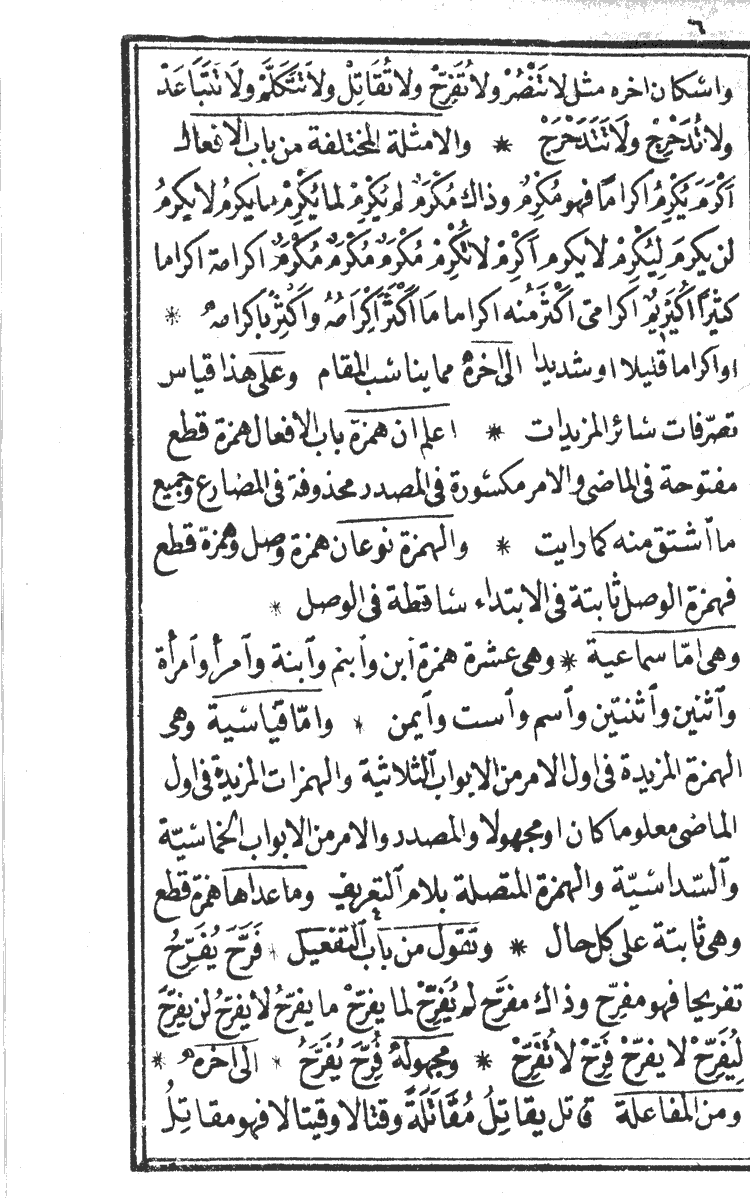 ٦
واسكان اخره مثل لَاتَنْصُرْ ولَاتُفَرِّحْ ولَاتُقَاتِلْ ولَاتَتَكَلَّمْ ولَاتَتَبَاعَدْ
ولَاتُدَحْرِجْ ولَاتَتَدَحْرَجْ * والامثلة المختلفة من باب الافعال
اَكْرَمَ يُكْرِمُ اكراماً فهو مُكْرِمٌ وذاك مُكْرَمٌ لم يُكْرِمْ لما يُكْرِمْ مايكرمُ لايكرمُ
لن يكرمَ لِيُكْرِمْ لايكرم اَكْرِمْ لاتُكْرِمْ مُكْرَمٌ مُكْرَمٌ مُكْرَمٌ اكرامة اكراما
كثيراً اُكَيْرِيمٌ اكرامى اَكْثَرُ منه اكراما مَا اَكْثَرَ اِكْرَامَهُ وَاَكْثِرْ بِاِكرامه *
او اكراما قليلا او شديدا الى اخره مما يناسب المقام وعلى هذا قياس
تصرّفات سائر المزيدات * اعلم ان همزة باب الافعال همزة قطع
مفتوحة فى الماضى والامر مكسورة فى المصدر محذوفة فى المضارع وجميع
ما اشتق منه كما رايت * والهمزة نوعان همزة وصل وهمزة قطع
فهمزة الوصل ثابتة فى الابتداء ساقطة فى الوصل *
وهى امّا سماعية * وهى عشرة همزة ابن وابنم وابنة وامرأ وامرأة
واثنين واثنتين واسم واست وايمن * وامّا قياسية وهى
الهمزة المزيدة فى اول الامر من الابواب الثلاثية والهمزات المزيدة فى اول
الماضى معلوما كان او مجهولا والمصدر والامر من الابواب الخماسيّة
والسّداسيّة والهمزة المتصلة بلام التعريف وماعداها همزة قطع
وهى ثابتة على كل حال * وتقول من باب التفعيل * فَرَّحَ يُفَرِّحُ
تفريحا فهو مفرّح وذاك مفرَّح لم يُفَرِّحْ لما يفرّحْ ما يفرّحُ لايفرّحُ لن يفرّحَ
لِيُفَرِّحْ لا يفرّحْ فَرِّحْ لاتُفَرِّحْ * ومجهوله فُرِّحَ يُفَرَّحُ * الى اخره *
ومن المفاعلة قاتل يقاتِلُ مُقَاتَلَةً وقتالا وقيتالا فهو مقاتِلٌ